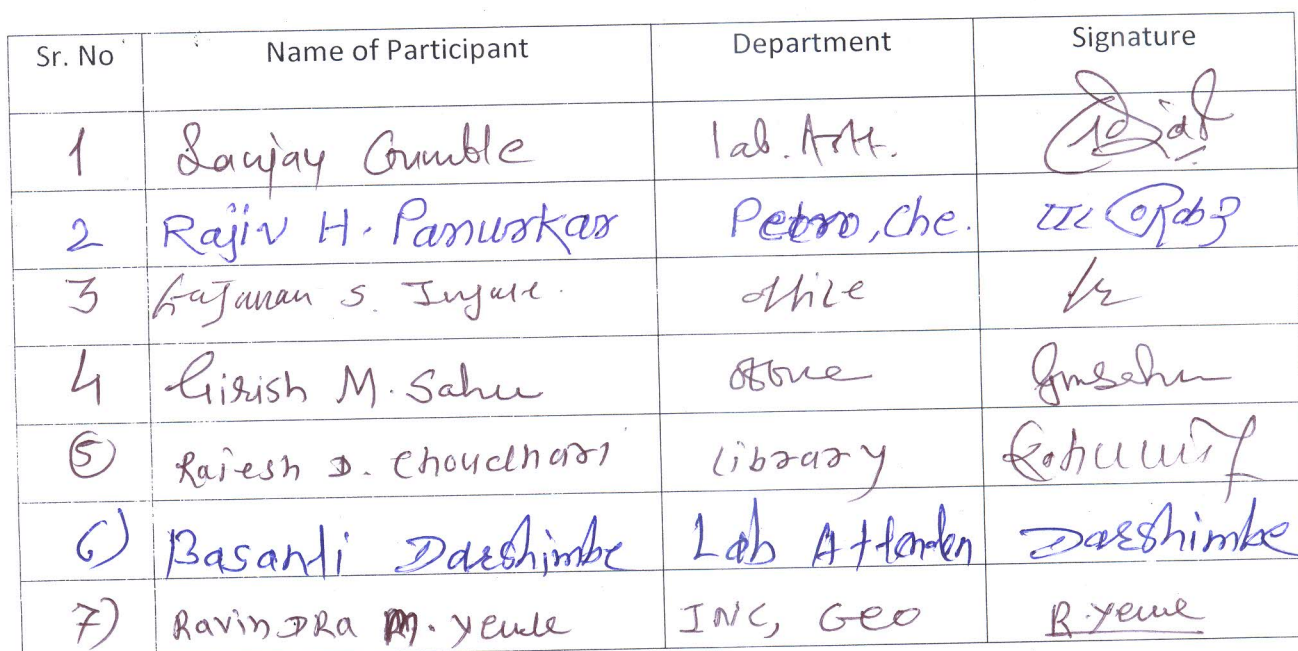 Sr. No Name of Participant Department Signature
1 Sanjay Gumble lab. Att.
2 Rajiv H. Panurkar Petro, Che.
3 Gajanan S. Ingale. office
4 Girish M. Sahu Gmsahu
5 Rajesh D. Choudhari library
6) Basanti Darshimbe Lab Attenden Darshimbe
7) RavinDRa M. Yewle INC, GEO R. Yewle